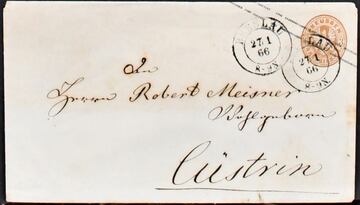 LAU
27.1
66
8-9N.
PREUSSEN
LAU
27.1
66
8-9N.
An
Herrn Robert Meisner
Wohlgeboren
Cüstrin